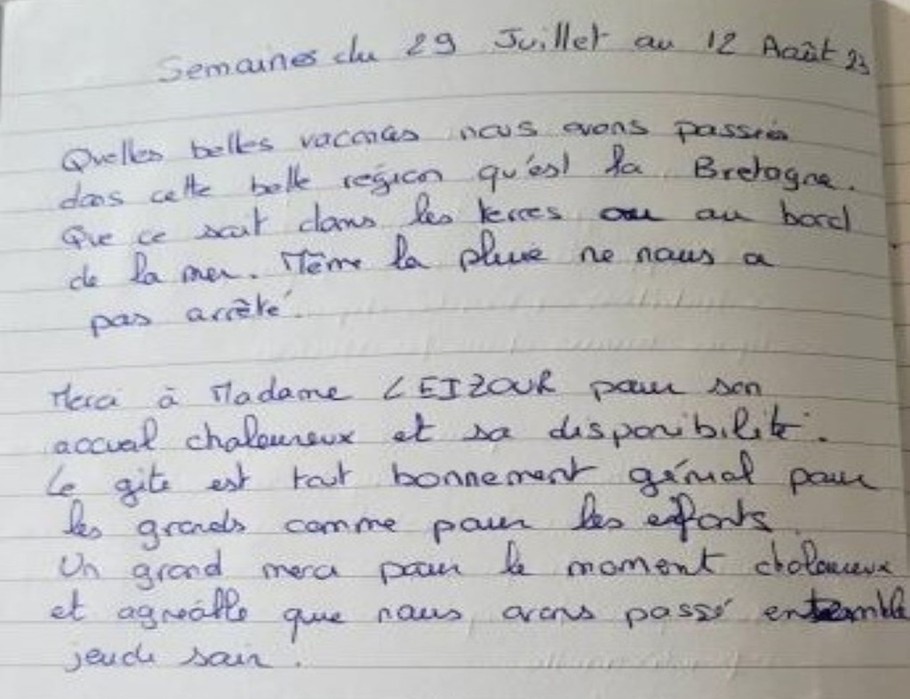 Semaines du 29 Juillet au 12 Août 23
Quelles belles vacances nous avons passées
dans cette belle région qu'est la Bretagne.
Que ce soit dans les terres ou au bord
de la mer. Même la pluie ne nous a
pas arrêté.
Merci à Madame LEIZOUR pour son
accueil chaleureux et sa disponibilité.
Le gite est tout bonnement génial pour
les grands comme pour les enfants.
Un grand merci pour le moment chaleureux
et agréable que nous avons passé ensemble
jeudi soir.